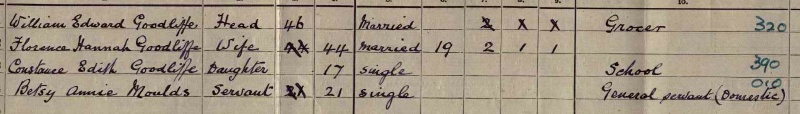 6. 7. 8. 9. 10.
William Edward Goodliffe Head 46 Married 2 X X Grocer 320
Florence Hannah Goodliffe Wife 44 Married 19 2 1 1
Constance Edith Goodliffe Daughter 17 Single School 390
Betsy Annie Moulds Servant 21 Single General servant (Domestic) 010